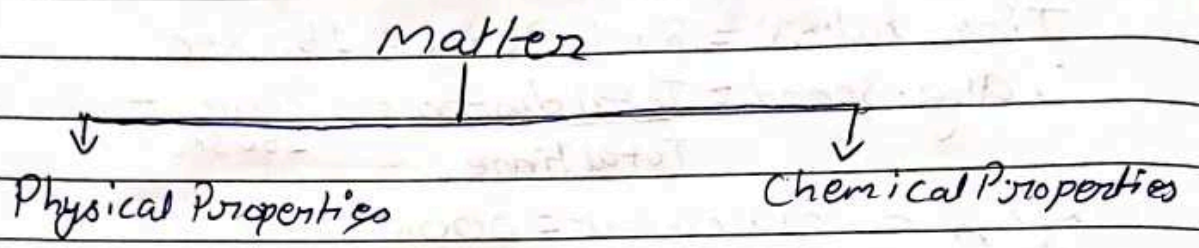 Matter
Physical Properties Chemical Properties